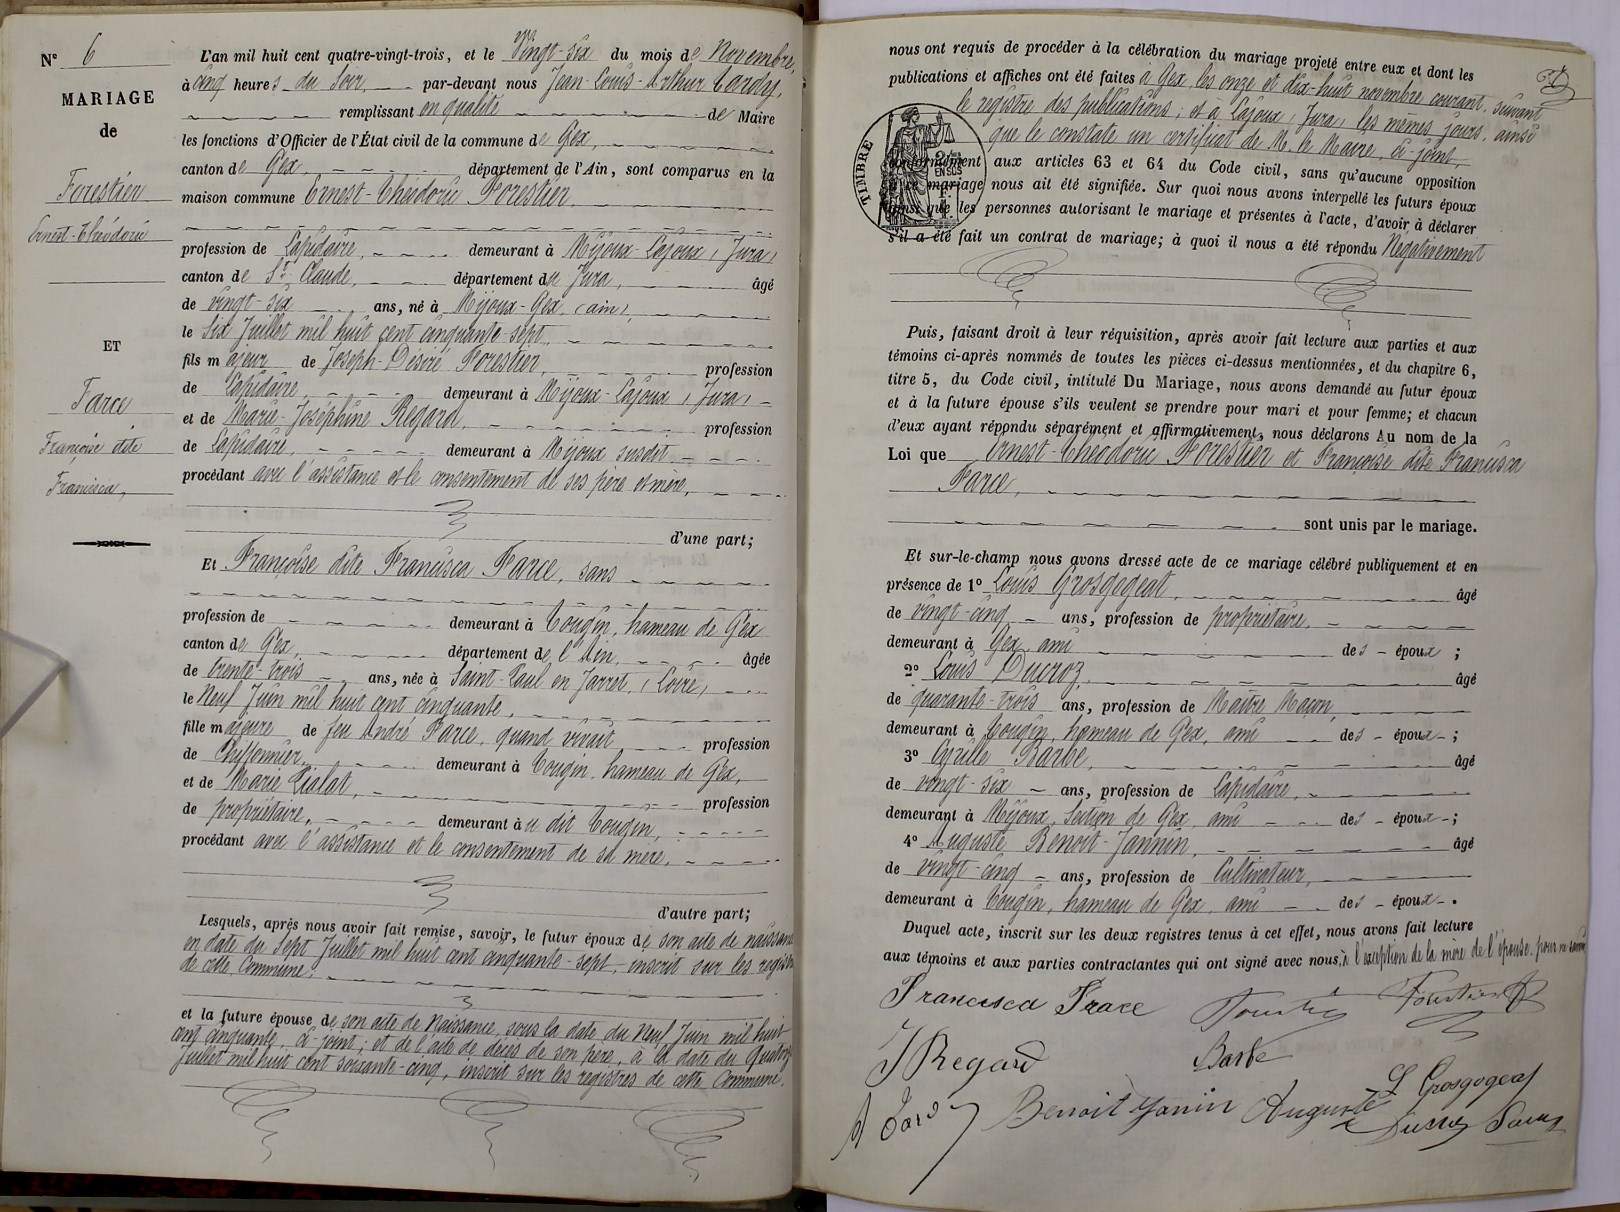 N° 6
MARIAGE
de
Forestier
Ernest-Théodoric
ET
Farce
Françoise dite
Francisca,
L'an mil huit cent quatre-vingt-trois, et le Vingt-six du mois de Novembre,
à cinq heures du Soir, par-devant nous Jean-Louis-Arthur Tardy,
remplissant en qualité de Maire
les fonctions d'Officier de l'État civil de la commune de Gex,
canton de Gex, département de l'Ain, sont comparus en la
maison commune Ernest-Théodoric Forestier
profession de Lapidaire, demeurant à Mijoux-Lajoux (Jura)
canton de St Claude, département du Jura, âgé
de vingt-six ans, né à Mijoux-Gex, (ain),
le Six Juillet mil huit cent cinquante-sept
fils majeur de Joseph-Désiré Forestier, profession
de Lapidaire, demeurant à Mijoux-Lajoux (Jura)
et de Marie-Joséphine Regard, profession
de Lapidaire, demeurant à Mijoux susdit
procédant avec l'assistance et le consentement de ses père et mère,
d'une part;
Et Françoise dite Francisca Farce, sans
profession de demeurant à Tougin, hameau de Gex
canton de Gex, département de l'Ain, âgée
de trente-trois ans, née à Saint-Paul en Jarret, (Loire)
le Neuf Juin mil huit cent cinquante,
fille majeure de feu André Farce, quand vivait profession
de Chiffonnier, demeurant à Tougin, hameau de Gex,
et de Marie Lialat, profession
de propriétaire, demeurant au dit Tougin,
procédant avec l'assistance et le consentement de sa mère,
d'autre part;
Lesquels, après nous avoir fait remise, savoir, le futur époux de son acte de naissance
en date du Sept Juillet mil huit cent cinquante-sept, inscrit sur les registres
de cette Commune.
et la future épouse de son acte de Naissance, sous la date du Neuf Juin mil huit
cent cinquante, ci-joint; et de l'acte de décès de son père, à la date du Quatorze
Juillet mil huit cent soixante-cinq, inscrit sur les registres de cette Commune.
nous ont requis de procéder à la célébration du mariage projeté entre eux et dont les
publications et affiches ont été faites à Gex, les onze et dix-huit novembre courant, suivant
le registre des publications; et à Lajoux (Jura) les mêmes jours, ainsi
que le constate un certificat de M. le Maire, ci-joint,
TIMBRE
conformément aux articles 63 et 64 du Code civil, sans qu'aucune opposition
à ce mariage nous ait été signifiée. Sur quoi nous avons interpellé les futurs époux
ainsi que les personnes autorisant le mariage et présentes à l'acte, d'avoir à déclarer
s'il a été fait un contrat de mariage; à quoi il nous a été répondu Négativement
Puis, faisant droit à leur réquisition, après avoir fait lecture aux parties et aux
témoins ci-après nommés de toutes les pièces ci-dessus mentionnées, et du chapitre 6,
titre 5, du Code civil, intitulé Du Mariage, nous avons demandé au futur époux
et à la future épouse s'ils veulent se prendre pour mari et pour femme; et chacun
d'eux ayant répondu séparément et affirmativement, nous déclarons Au nom de la
Loi que Ernest-Théodoric Forestier et Françoise dite Francisca
Farce,
sont unis par le mariage.
Et sur-le-champ nous avons dressé acte de ce mariage célébré publiquement et en
présence de 1° Louis Grosgogeat, âgé
de vingt-cinq ans, profession de propriétaire,
demeurant à Gex, ami des époux;
2° Louis Ducroz, âgé
de quarante-trois ans, profession de Maître Maçon,
demeurant à Tougin, hameau de Gex, ami des époux;
3° Cyrille Barbe, âgé
de vingt-six ans, profession de Lapidaire,
demeurant à Mijoux, Section de Gex, ami des époux;
4° Auguste Benoit-Jannin, âgé
de vingt-cinq ans, profession de Cultivateur,
demeurant à Tougin, hameau de Gex, ami des époux.
Duquel acte, inscrit sur les deux registres tenus à cet effet, nous avons fait lecture
aux témoins et aux parties contractantes qui ont signé avec nous, à l'exception de la mère de l'épouse pour ne savoir
Francisca Frace Forestier
J Regard Barbe
L Grosgogeat
A Tardy Benoit Janin Auguste